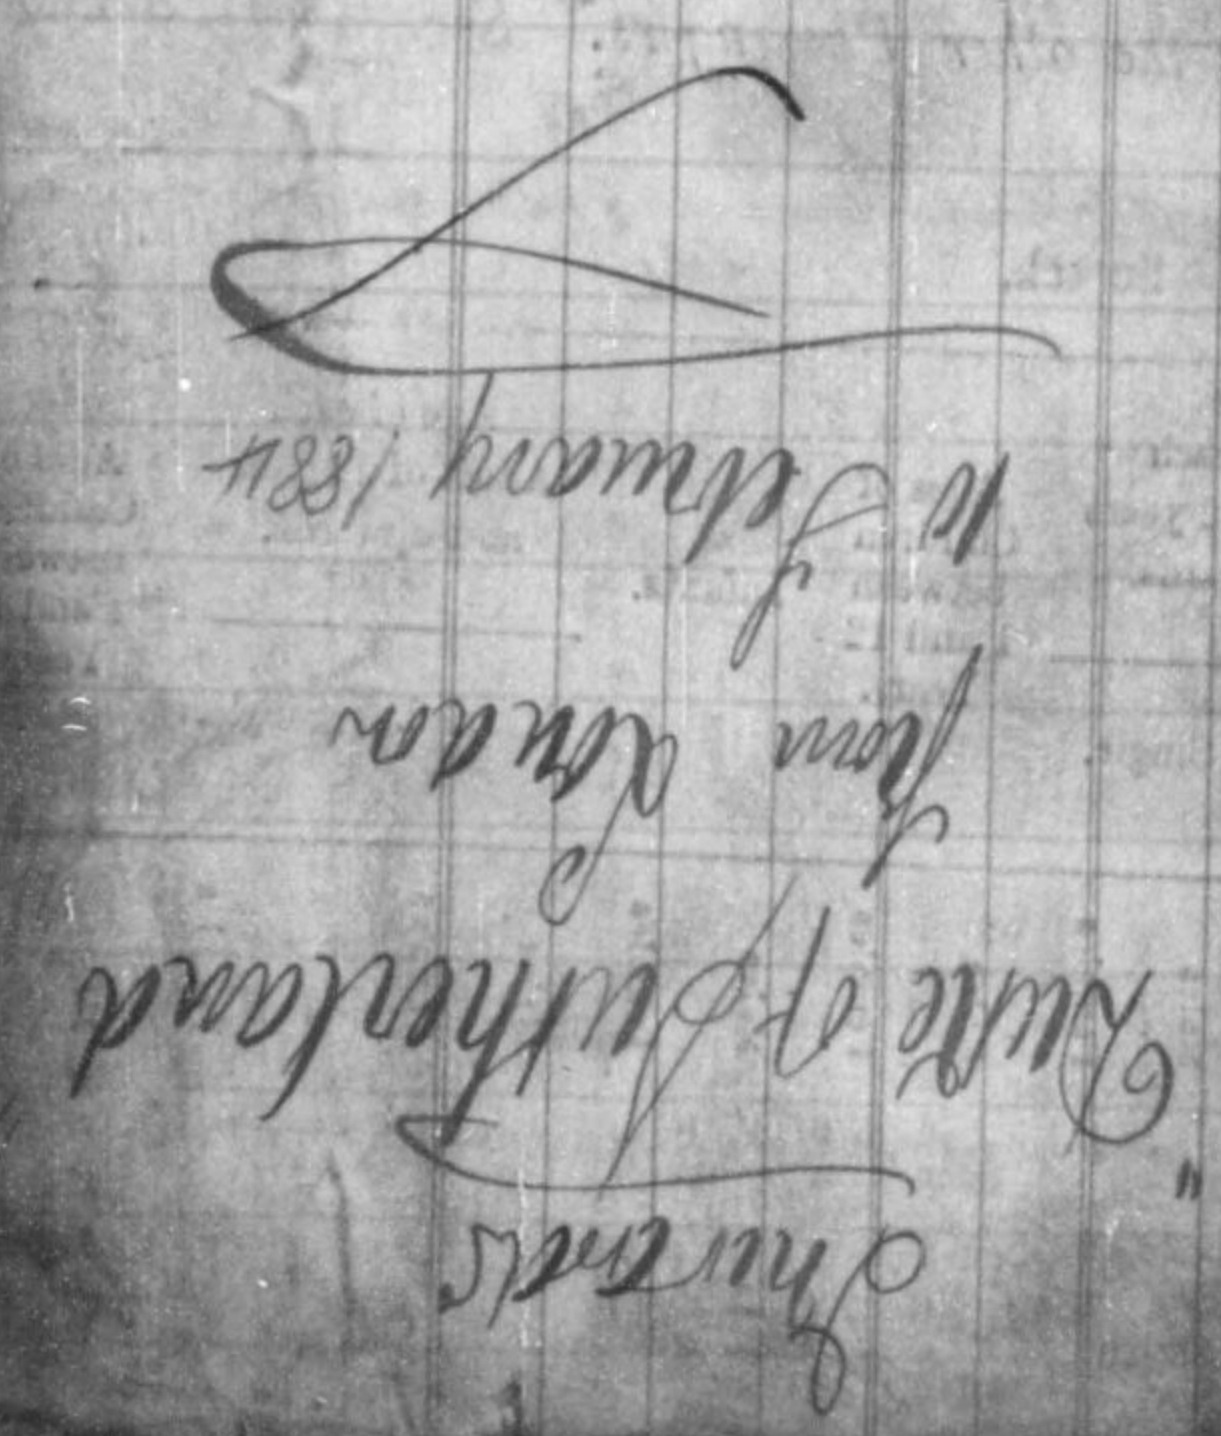 Inwards
"Duke of Sutherland
from London
10 February 1884